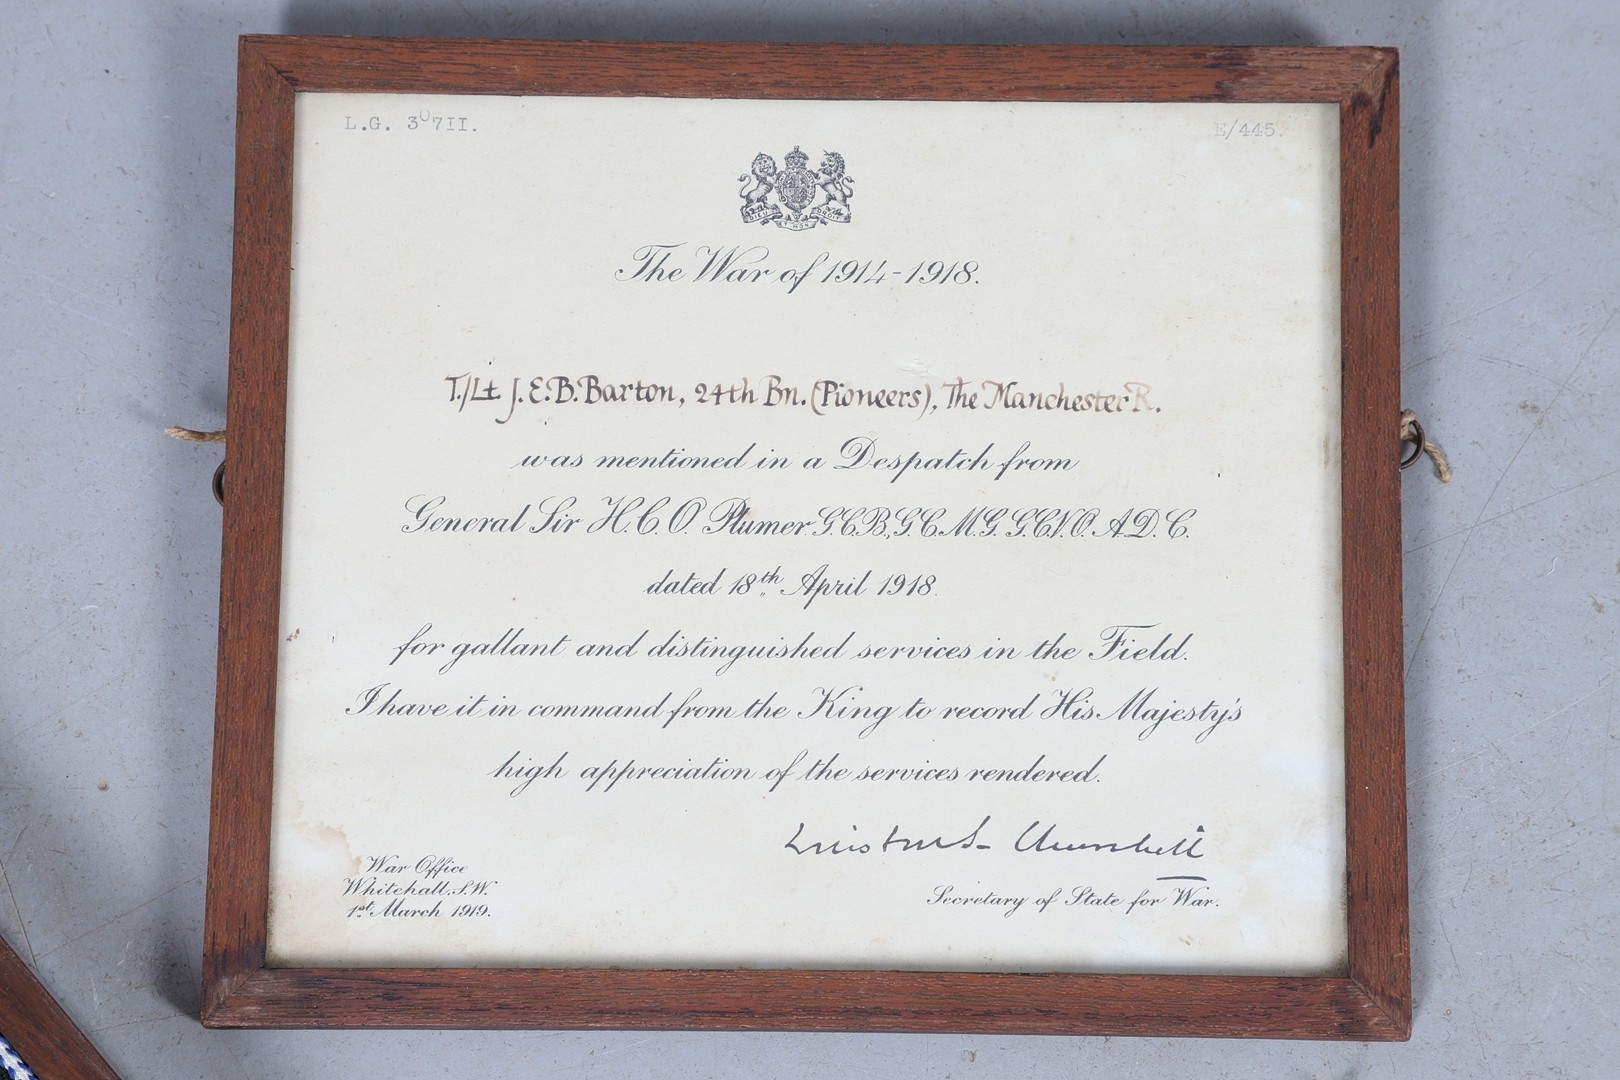 L.G. 30711.
E/445.
DIEU ET MON DROIT
The War of 1914-1918.
T./Lt. J.E.B. Barton, 24th Bn. (Pioneers), The Manchester R.
was mentioned in a Despatch from
General Sir H.C.O. Plumer G.C.B., G.C.M.G. G.C.V.O. A.D.C.
dated 18th April 1918.
for gallant and distinguished services in the Field.
I have it in command from the King to record His Majesty's
high appreciation of the services rendered.
Winston S. Churchill
War Office
Whitehall, S.W.
1st March 1919.
Secretary of State for War.